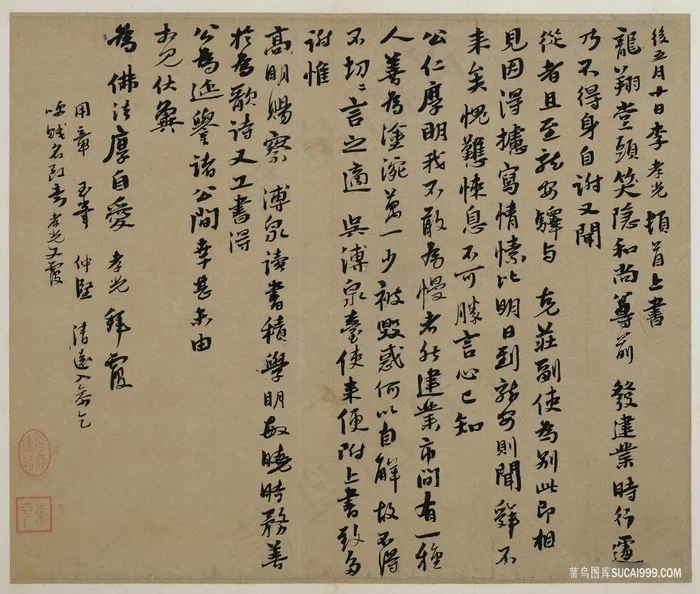 後五月十日李孝光頓首上書
龍翔堂頭笑隱和尚尊前 發建業時行遽
乃不得身自謝又聞
從者且至龍安驛與 克莊副使為別此即相
見因得攄寫情愫比明日到龍安則聞舜不
來矣愧難悚息不可勝言心已知
公仁厚明我不敢為慢者然建業市間有一種
人善為塗涴萬一少被毀惑何以自解故不得
不切々言之適 吳溥泉臺使來便附上書致
謝惟
高明賜察 溥泉讀書積學明敏曉時務善
於為歌詩又工書得
公為延譽諸公間幸甚未由
為佛法厚自愛 孝光 拜覆
用章 仲堅 清遠
菜鸟图库SUCAI999.COM